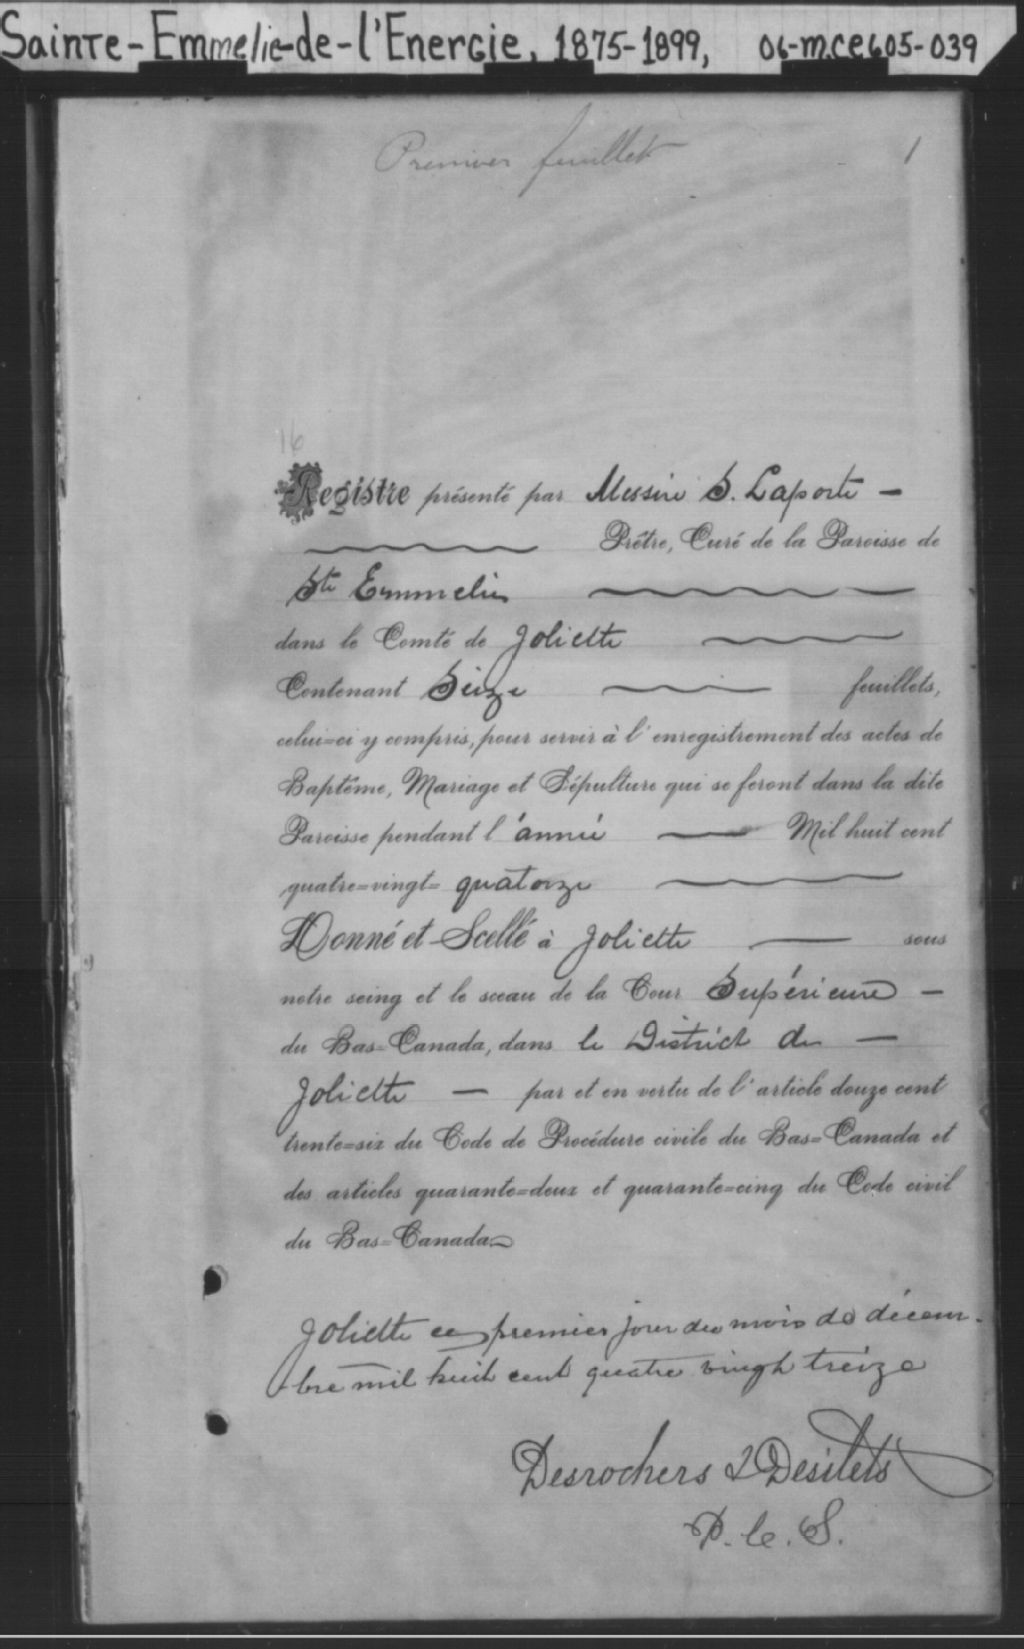 Sainte-Emmelie-de-l'Energie, 1875-1899, 06-m.ce605-039
Premier feuillet 1
16
Registre présenté par Messire S. Laporte —
Prêtre, Curé de la Paroisse de
Ste Emmelie
dans le Comté de Joliette
Contenant Seize feuillets,
celui=ci y compris, pour servir à l'enregistrement des actes de
Baptême, Mariage et Sépulture qui se feront dans la dite
Paroisse pendant l'année — Mil huit cent
quatre=vingt= quatorze
Donné et Scellé à Joliette — sous
notre seing et le sceau de la Cour Supérieure —
du Bas=Canada, dans le District de —
Joliette — par et en vertu de l'article douze cent
trente=six du Code de Procédure civile du Bas=Canada et
des articles quarante=deux et quarante=cinq du Code civil
du Bas=Canada.
Joliette ce premier jour du mois de décem-
bre mil huit cent quatre vingt treize
Desrochers & Desilets
P. C. S.